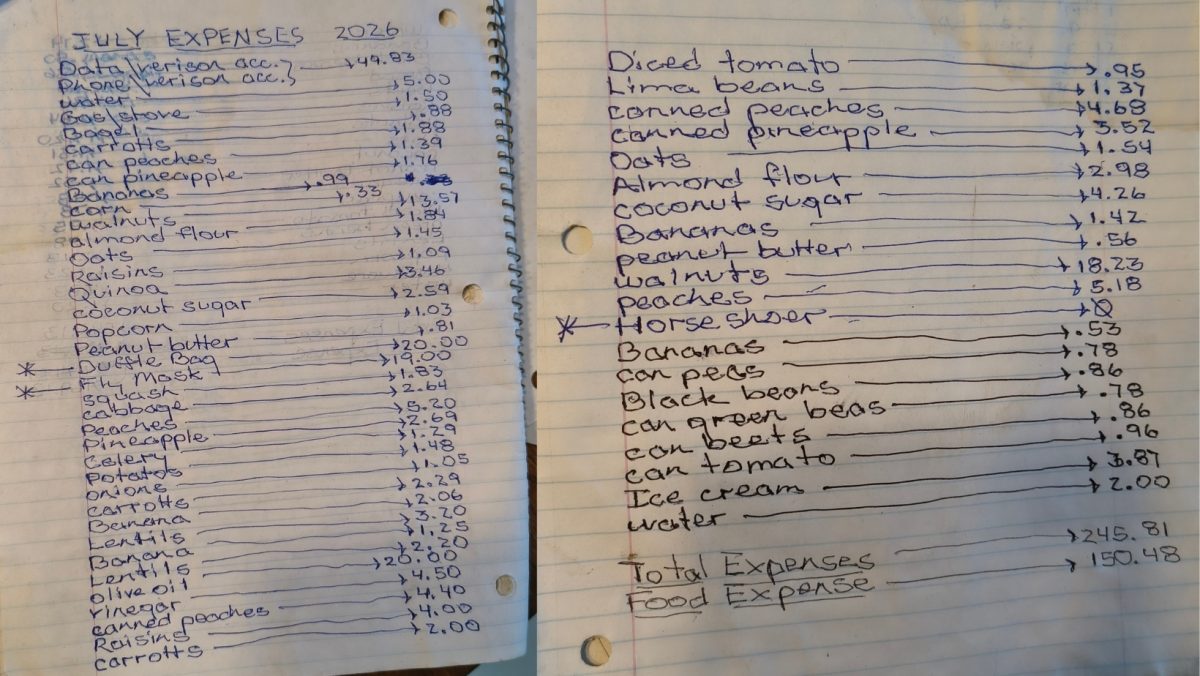 JULY EXPENSES 2026
Data \ verison acc. } → 49.83
Phone \ verison acc. }
water → 5.00
Gas/stove → 1.50
Bagel → .88
carrotts → 1.88
can peaches → 1.39
can pineapple → 1.76
Bananas → .99
corn → .33
walnuts → 13.57
almond flour → 1.84
Oats → 1.45
Raisins → 1.09
Quinoa → 3.46
coconut sugar → 2.59
Popcorn → 1.03
Peanut butter → .81
* Duffle Bag → 20.00
* Fly Mask → 19.00
squash → 1.83
cabbage → 2.64
Peaches → 5.20
Pineapple → 2.69
Celery → 1.29
Potatos → 1.48
onions → 1.05
carrotts → 2.29
Banana → 2.06
Lentils → 3.20
Banana → 1.25
Lentils → 2.20
olive oil → 20.00
vinegar → 4.50
canned peaches → 4.40
Raisins → 4.00
carrotts → 2.00
Diced tomato → .95
Lima beans → 1.37
canned peaches → 4.68
canned pineapple → 3.52
Oats → 1.54
Almond flour → 2.98
coconut sugar → 4.26
Bananas → 1.42
peanut butter → .56
walnuts → 18.23
peaches → 5.18
* Horse shoer → 0
Bananas → .53
can peas → .78
Black beans → .86
can green beas → .78
can beets → .86
can tomato → .96
Ice cream → 3.87
water → 2.00
Total Expenses → 245.81
Food Expense → 150.48